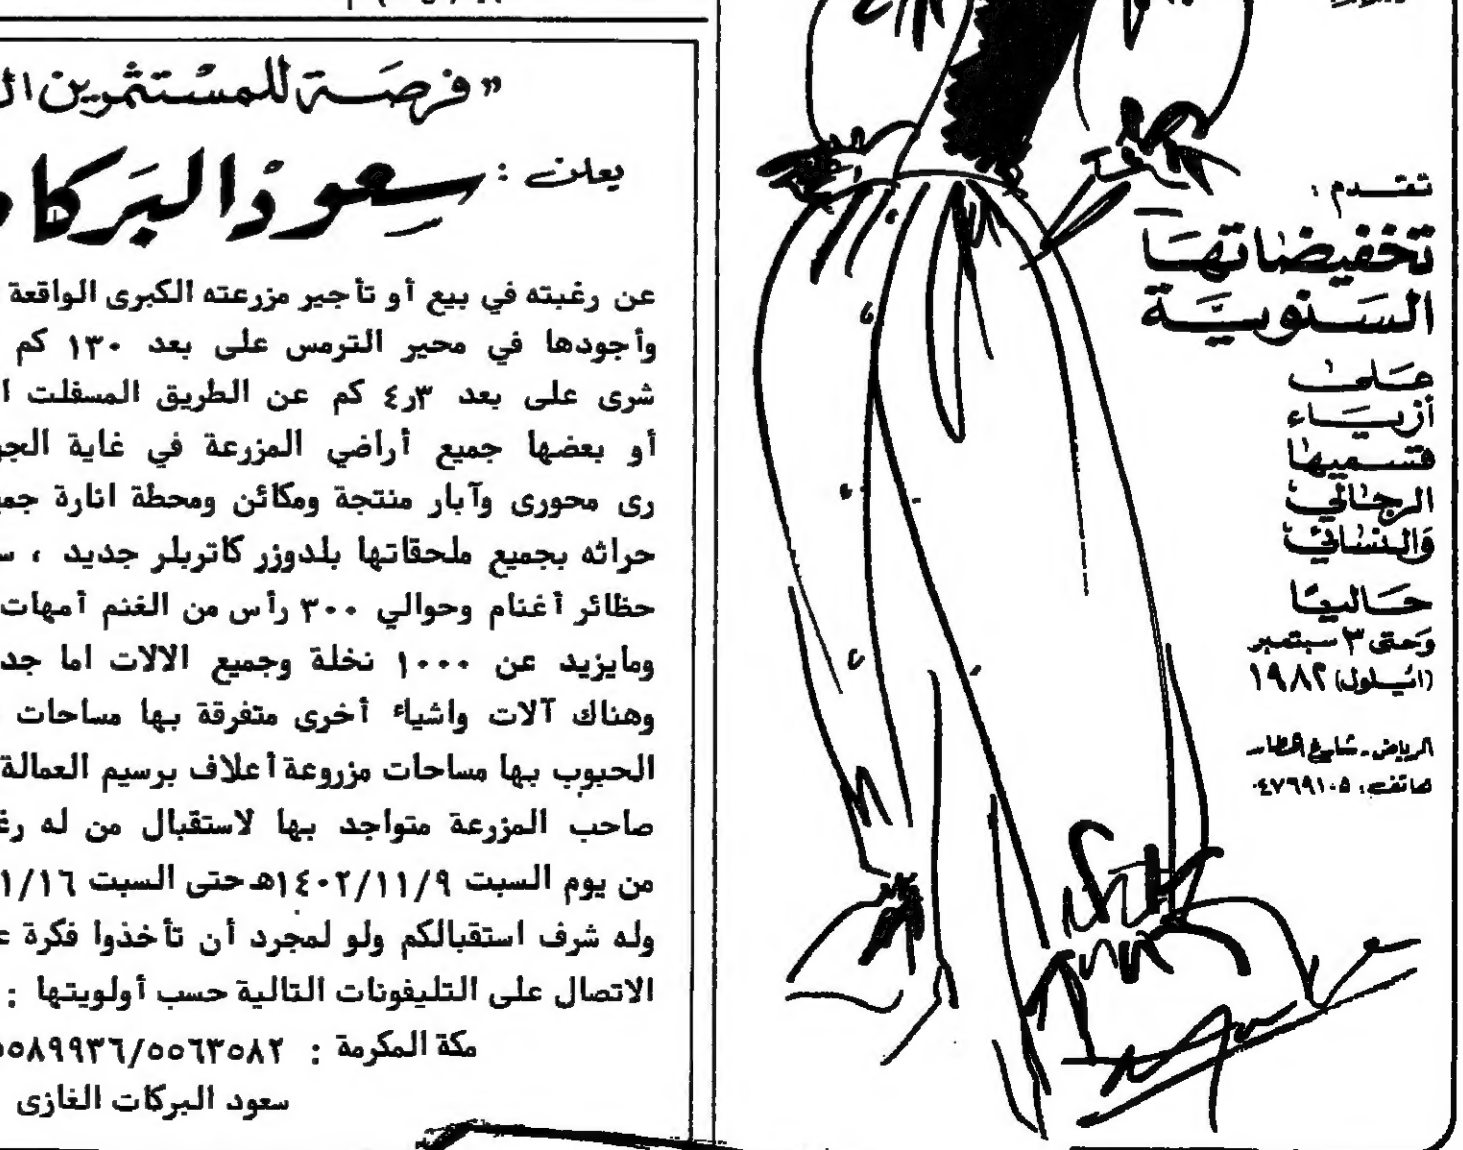 تقدم :
تخفيضاتها
السنوية
على
أزياء
قسميها
الرجالي
والنسائي
حاليًا
وحتى ٣ سبتمبر
(ائيلول) ١٩٨٢
الرياض - شارع المطار
هاتف: ٤٧٦٩١٠٥
« فرصة للمستثمرين
يعلن : سعود البركا
عن رغبته في بيع أو تأجير مزرعته الكبرى الواقعة
وأجودها في محير الترمس على بعد ١٣٠ كم
شرى على بعد ٤ر٣ كم عن الطريق المسفلت
أو بعضها جميع أراضي المزرعة في غاية
رى محورى وآبار منتجة ومكائن ومحطة انارة
حراثه بجميع ملحقاتها بلدوزر كاتربلر جديد ،
حظائر أغنام وحوالي ٣٠٠ رأس من الغنم أمهات
ومايزيد عن ١٠٠٠ نخلة وجميع الالات اما
وهناك آلات واشياء أخرى متفرقة بها مساحات
الحبوب بها مساحات مزروعة أعلاف برسيم العمالة
صاحب المزرعة متواجد بها لاستقبال من له
من يوم السبت ١٤٠٢/١١/٩هـ حتى السبت ١/١٦
وله شرف استقبالكم ولو لمجرد أن تأخذوا فكرة
الاتصال على التليفونات التالية حسب أولويتها :
مكة المكرمة : ٥٥٦٣٥٨٢/٥٥٨٩٩٣٦
سعود البركات الغازى